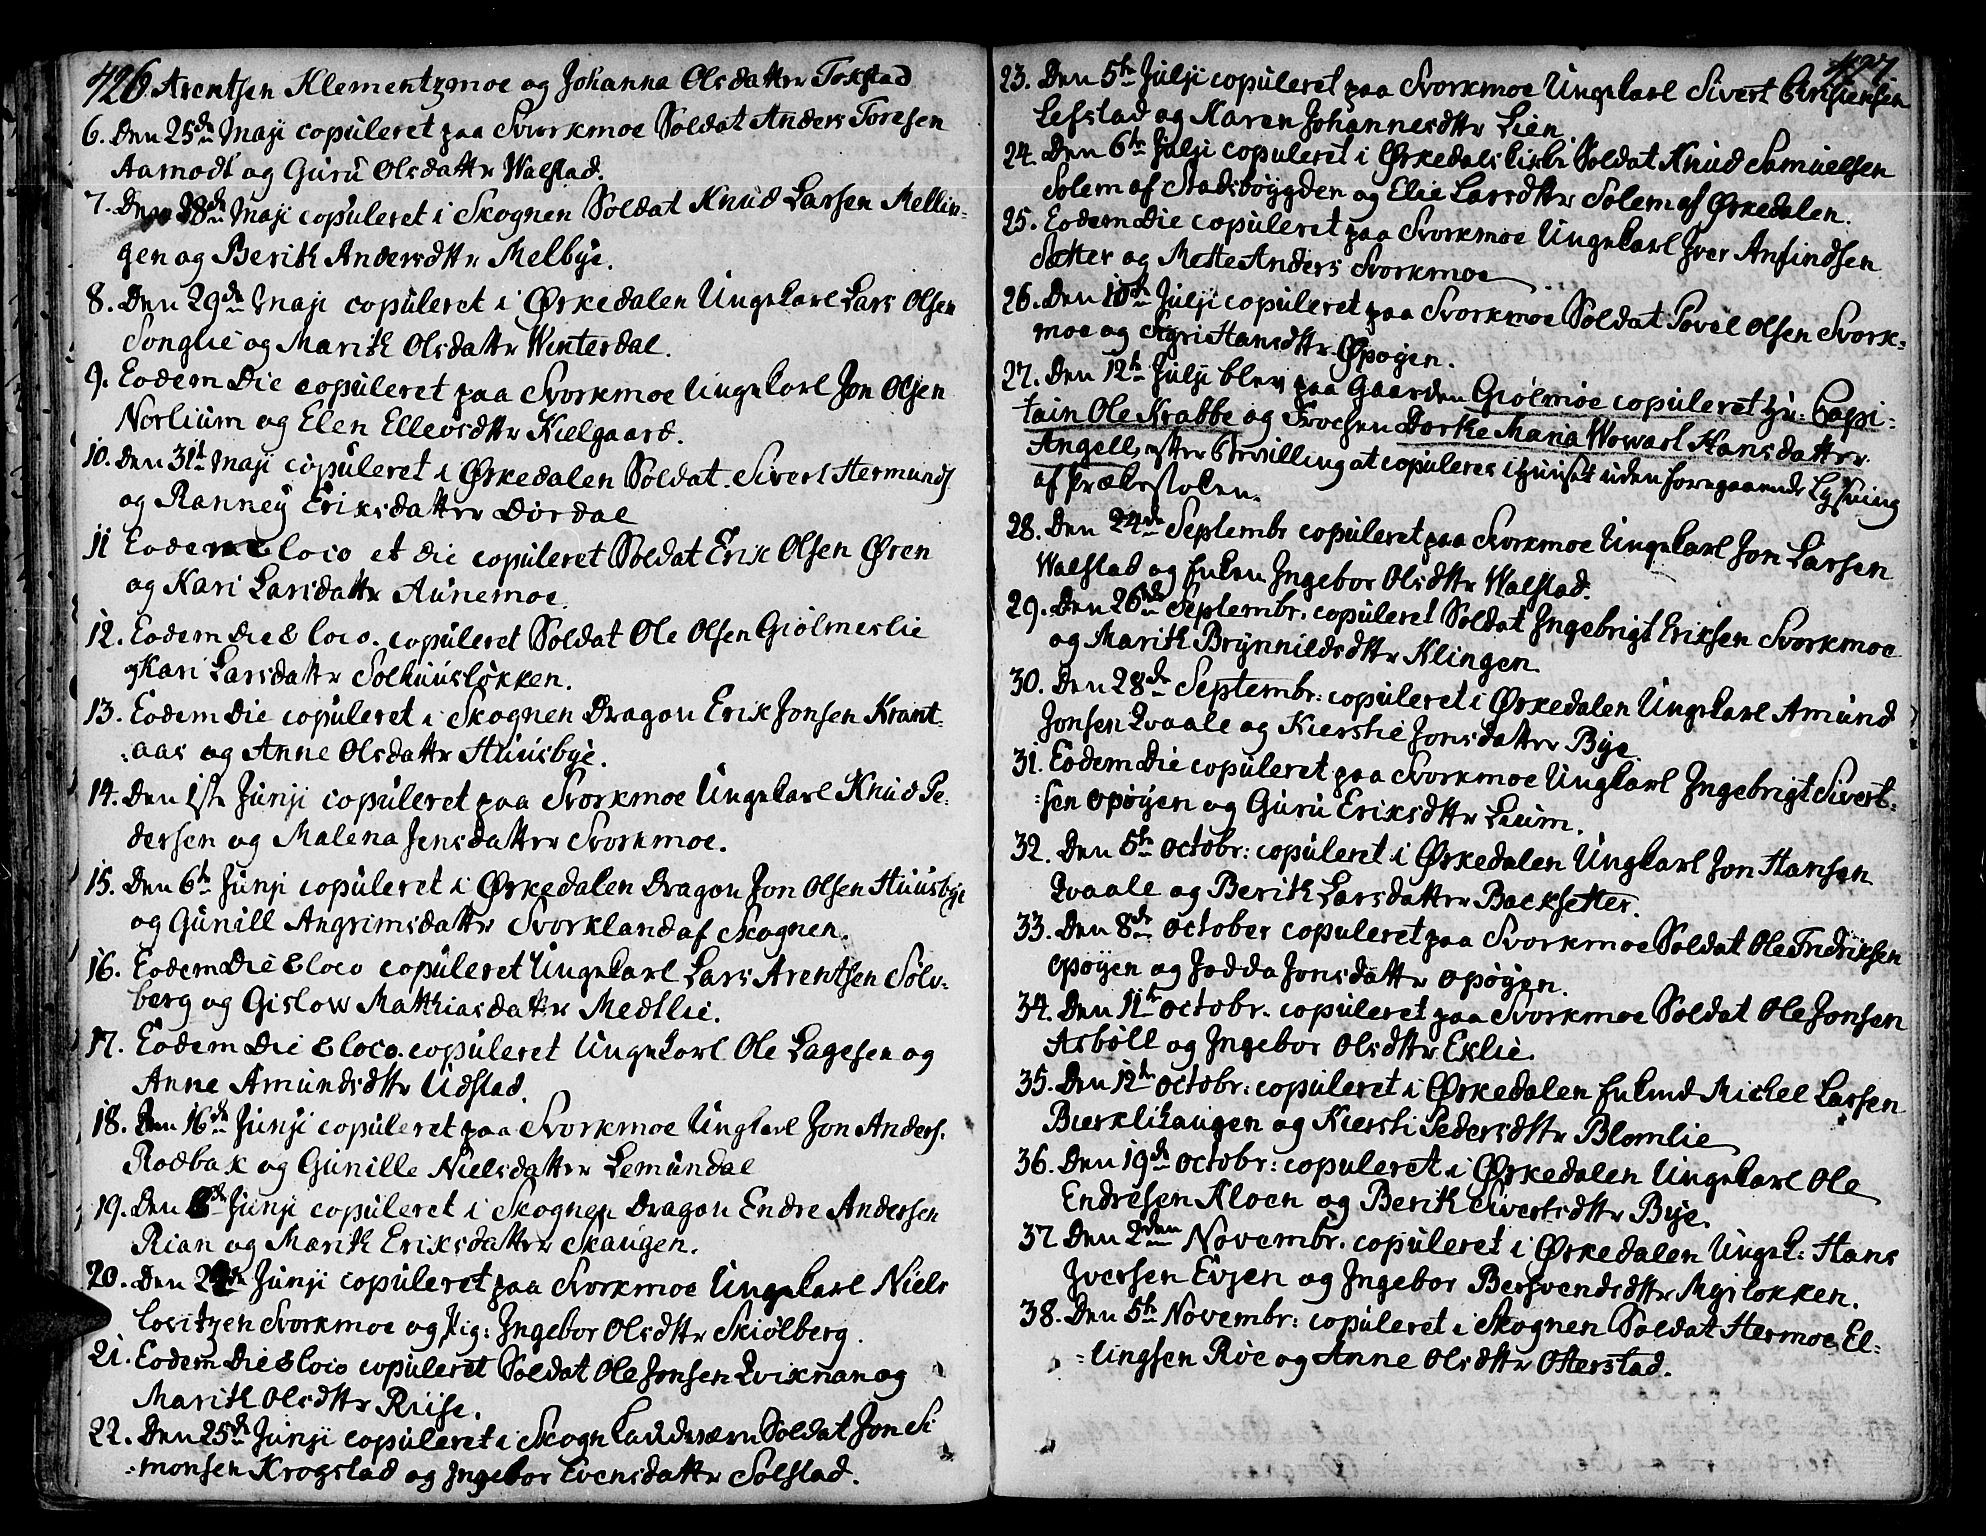 426. Arentsen Klementzmoe og Johanna Olsdatter Tokstad
6. Den 25de Maji copuleret paa Svorkmoe Soldat Anders Toresen
Aamodt og Guru Olsdattr Walstad.
7. Den 28de Maji copuleret i Skognen Soldat Knud Larsen Mellin-
gen og Berith Andersdttr Melbye.
8. Den 29de Maji copuleret i Ørkedalen Ungekarl Lars Olsen
Songlie og Marith Olsdattr Winterdal.
9. Eodem Die copuleret paa Svorkmoe Ungekarl Jon Olsen
Norlium og Elen Ellevsdttr Kielgaard.
10. Den 31t Maji copuleret i Ørkedalen Soldat Sivert Hermunds
og Ranney Eriksdatter Dordal
11 Eodem & loco et die copuleret Soldat Erik Olsen Øren
og Kari Larsdattr Aunemoe.
12. Eodem die & loco. copuleret Soldat Ole Olsen Giolmeslie
og Kari Larsdattr Solhuusløkken.
13. Eodem Die copuleret i Skognen Dragon Erik Jonsen Krant-
:aas og Anne Olsdattr Huusbye.
14. Den 1ste Junji copuleret paa Svorkmoe Ungekarl Knud Pe:
dersen og Malena Jensdatter Svorkmoe.
15. Den 6te Junji copuleret i Ørkedalen Dragon Jon Olsen Huusbye
og Gunill Angrimsdattr Svorkland af Skognen.
16. Eodem Die & loco copuleret Ungekarl Lars Arentsen Solv-
berg og Gislow Matthiasdattr Medlie.
17. Eodem Die & loco. copuleret Ungekarl Ole Lagesen og
Anne Amundsdttr Udstad.
18. Den 16de Junji copuleret paa Svorkmoe Ungkarl Jon Anders.
Rodbak og Gunille Nielsdatter Lemundal
19. Den de Junji copuleret i Skognen Dragon Endre Andersen
Rian og Marith Eriksdatter Skaugen.
20. Den 24de Junji copuleret paa Svorkmoe Ungekarl Niels
Loritzen Svorkmoe og Pig: Ingebor Olsdttr Skiølberg.
21. Eodem Die & loco copuleret Soldat Ole Jonsen Qvikman og
Marith Olsdttr Ruse.
22. Den 25de Junji copuleret i Skogn Landeværn Soldat Jon Si
:monsen Krogstad og Ingebor Evensdattr Solstad.
427
23. Den 5te Julji copuleret paa Svorkmoe Ungekarl Sivert Christensen
Lefstad og Karen Johannesdttr Lien.
24. Den 6te Julji copuleret i Ørkedals Kirke Soldat Knud Samuelsen
Solem af Stadsbøygden og Elie Larsdttr Solem af Ørkedalen.
25. Eodem Die copuleret paa Svorkmoe Ungekarl Iver Anfindsen
Sætter og Mette Anders Svorkmoe
26. Den 10de Julji copuleret paa Svorkmoe Soldat Povel Olsen Svork-
moe og Sigri Hansdttr Øpøyen.
27. Den 12te Julji blev paa Gaarden Giølmoe copuleret Hr: Capi-
tain Ole Krabbe og Froeken Dorthe Maria Wowarl Hansdatter
Angell, efter bevilling at copuleres i Huuset uden foregaaende Lysning
af Prækestolen.
28. Den 24de Septembr copuleret paa Svorkmoe Ungekarl Jon Larsen
Walstad og Enken Ingebor Olsdttr Walstad.
29. Den 26de Septembr. copuleret Soldat Ingebrigt Eriksen Svorkmoe
og Marith Brynnildsdttr Klingen
30. Den 28de Septembr: copuleret i Ørkedalen Ungekarl Amund
Jonsen Qvaale og Kierstie Jonsdatter Bye.
31. Eodem Die copuleret paa Svorkmoe Ungkarl Ingebrigt Sivert-
:sen Opøyen og Guru Eriksdttr Lium.
32. Den 5te Octobr: copuleret i Ørkedalen Ungkarl Jon Hansen
Qvaale og Berith Larsdatter Backsetter.
33. Den 8de October copuleret paa Svorkmoe Soldat Ole Fredriksen
Opøyen og Jodda Jonsdattr Opøyen.
34. Den 11te Octobr. copuleret paa Svorkmoe Soldat Ole Jonsen
Asbøll og Ingebor Olsdttr Eklie.
35. Den 12te Octobr: copuleret i Ørkedalen Enkmd Michel Larsen
Bierklihaugen og Kiersti Pedersdttr Blomlie
36. Den 19de Octobr: copuleret i Ørkedalen Ungekarl Ole
Endresen Kloen og Berith Sivertsdttr Bye.
37 Den 2den Novembr. copuleret i Ørkedalen Ungek: Hans
Iversen Evjen og Ingebor Bersvendsdttr Myrløkken.
38. Den 5te Novembr: copuleret i Skognen Soldat Hermoe El-
:lingsen Røe og Anne Olsdttr Otterstad.